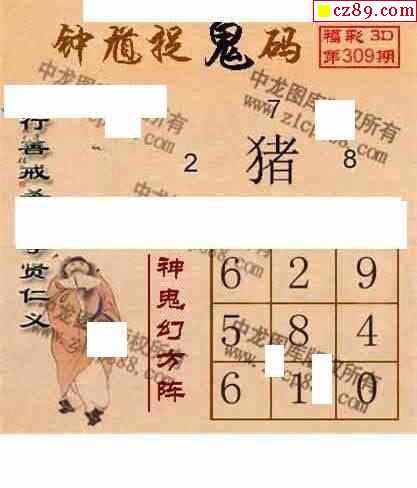 cz89.com
钟馗捉鬼码
福彩3D
第309期
7
2 猪 8
行善戒
贤仁义
神鬼幻方阵
6 2 9
5 8 4
6 1 0
中龙图库版权所有
www.zlcp888.com